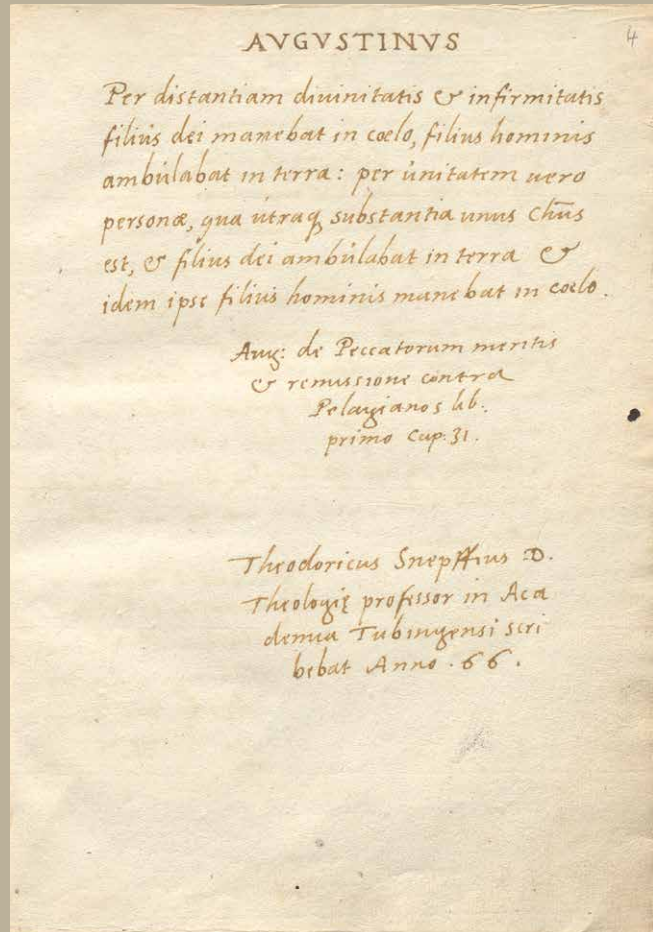 AVGVSTINVS
4
Per distantiam diuinitatis & infirmitatis
filius dei manebat in cœlo, filius hominis
ambulabat in terra: per unitatem uero
personæ, qua utraq; substantia unus Chũs
est, & filius dei ambulabat in terra &
idem ipse filius hominis manebat in cœlo.
Aug: de Peccatorum meritis
& remissione contra
Pelagianos lib.
primo Cap. 31.
Theodoricus Snepffius D.
Theologię professor in Aca
demia Tubingensi scri
bebat Anno . 66 .